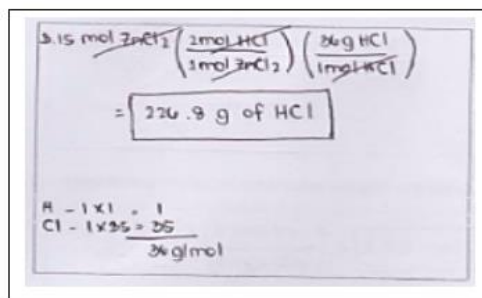 3.15 mol ZnCl2 (2mol HCl / 1mol ZnCl2) (36g HCl / 1mol HCl)
= 226.8 g of HCl
H - 1x1 = 1
Cl - 1x35 = 35
36g/mol